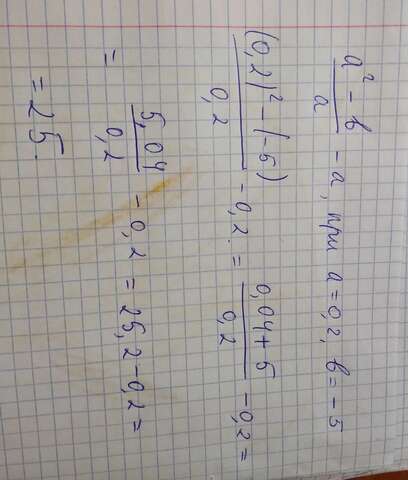 (a² - b)/a - a, при a=0,2, b=-5
((0,2)² - (-5))/0,2 - 0,2 = (0,04+5)/0,2 - 0,2 =
= 5,04/0,2 - 0,2 = 25,2 - 0,2 =
= 25.